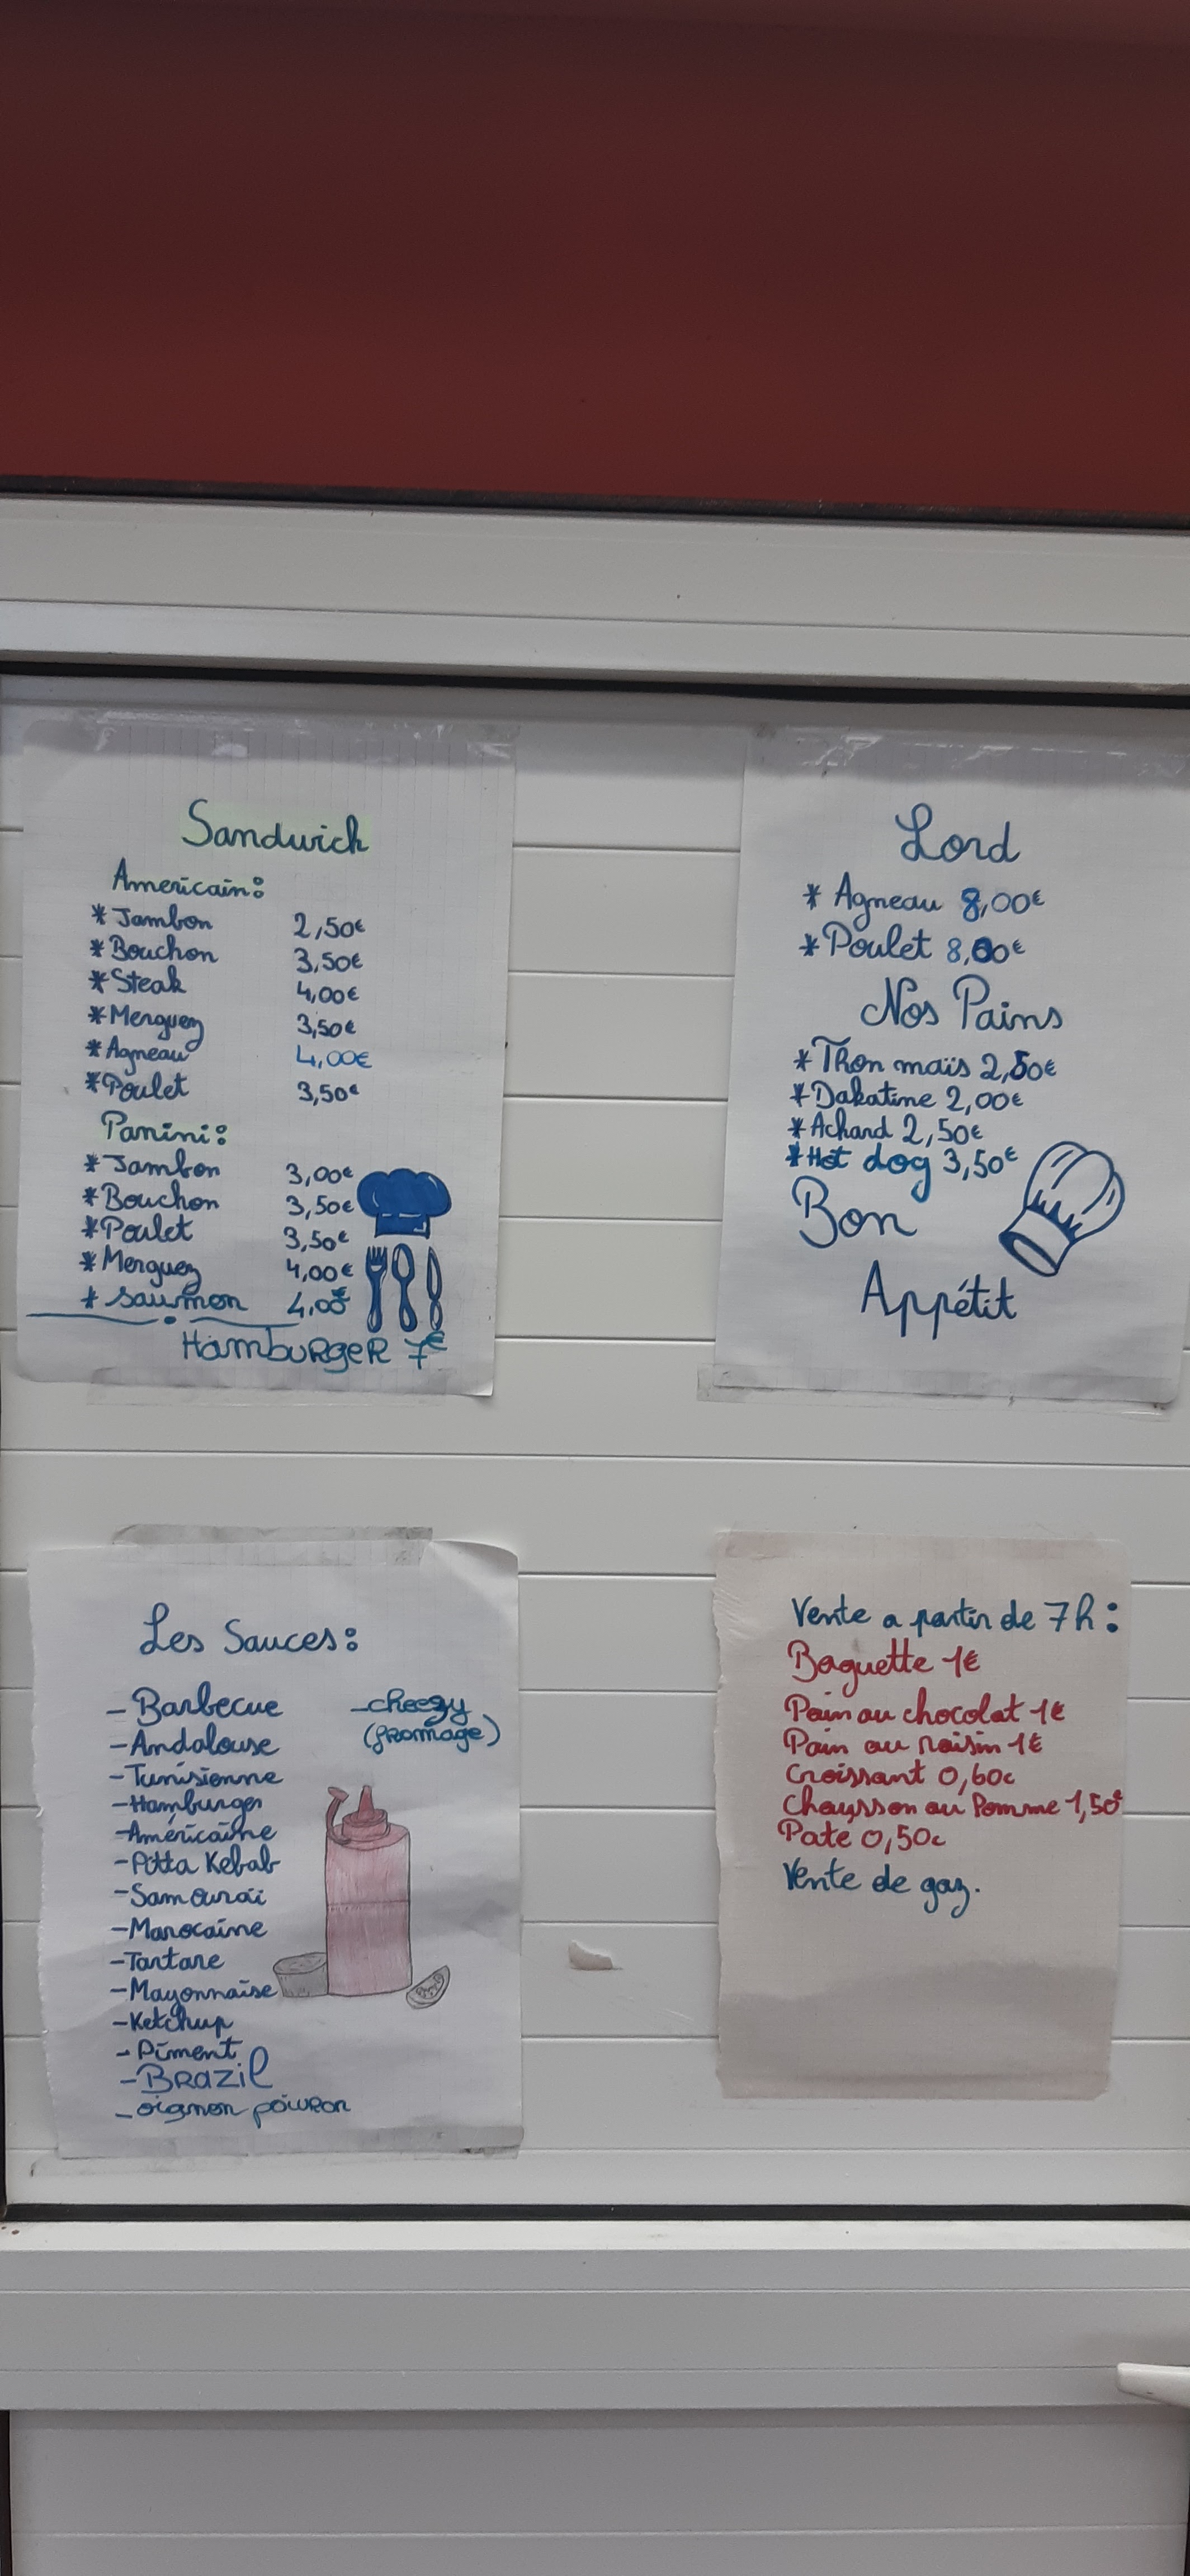 Sandwich
Americain:
* Jambon 2,50€
* Bouchon 3,50€
* Steak 4,00€
* Merguez 3,50€
* Agneau 4,00€
* Poulet 3,50€
Panini:
* Jambon 3,00€
* Bouchon 3,50€
* Poulet 3,50€
* Merguez 4,00€
* saumon 4,00€
HamburgeR 7€
Lord
* Agneau 8,00€
* Poulet 8,00€
Nos Pains
* Thon maïs 2,50€
* Dakatine 2,00€
* Achard 2,50€
* Hot dog 3,50€
Bon
Appétit
Les Sauces:
- Barbecue
- Andalouse
- Tunisienne
- Hamburger
- Américaine
- Pitta Kebab
- Samouraï
- Marocaine
- Tartare
- Mayonnaise
- Ketchup
- Piment
- BRAZil
- oignon poivRon
- cheezy
(fRomage)
Vente a partir de 7h:
Baguette 1€
Pain au chocolat 1€
Pain au raisin 1€
Croissant 0,60c
Chaysson au Pomme 1,50€
Pate 0,50c
Vente de gaz.